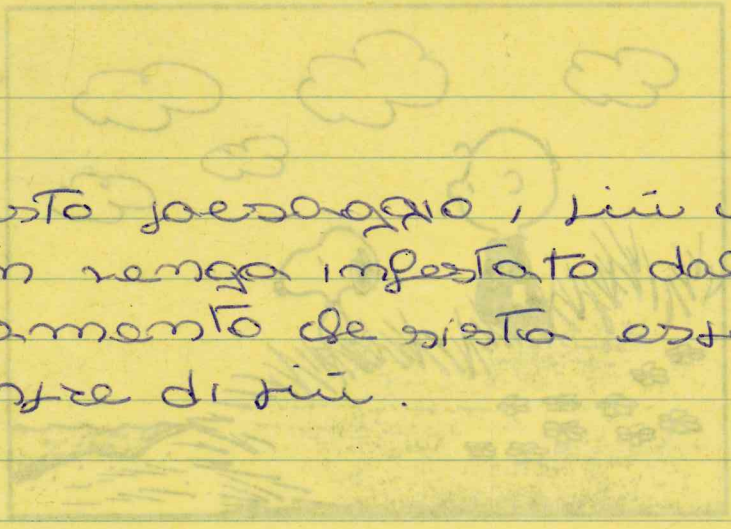 sto paesaggio, più
n venga infestato dal
amento che si sta es
pre di più.